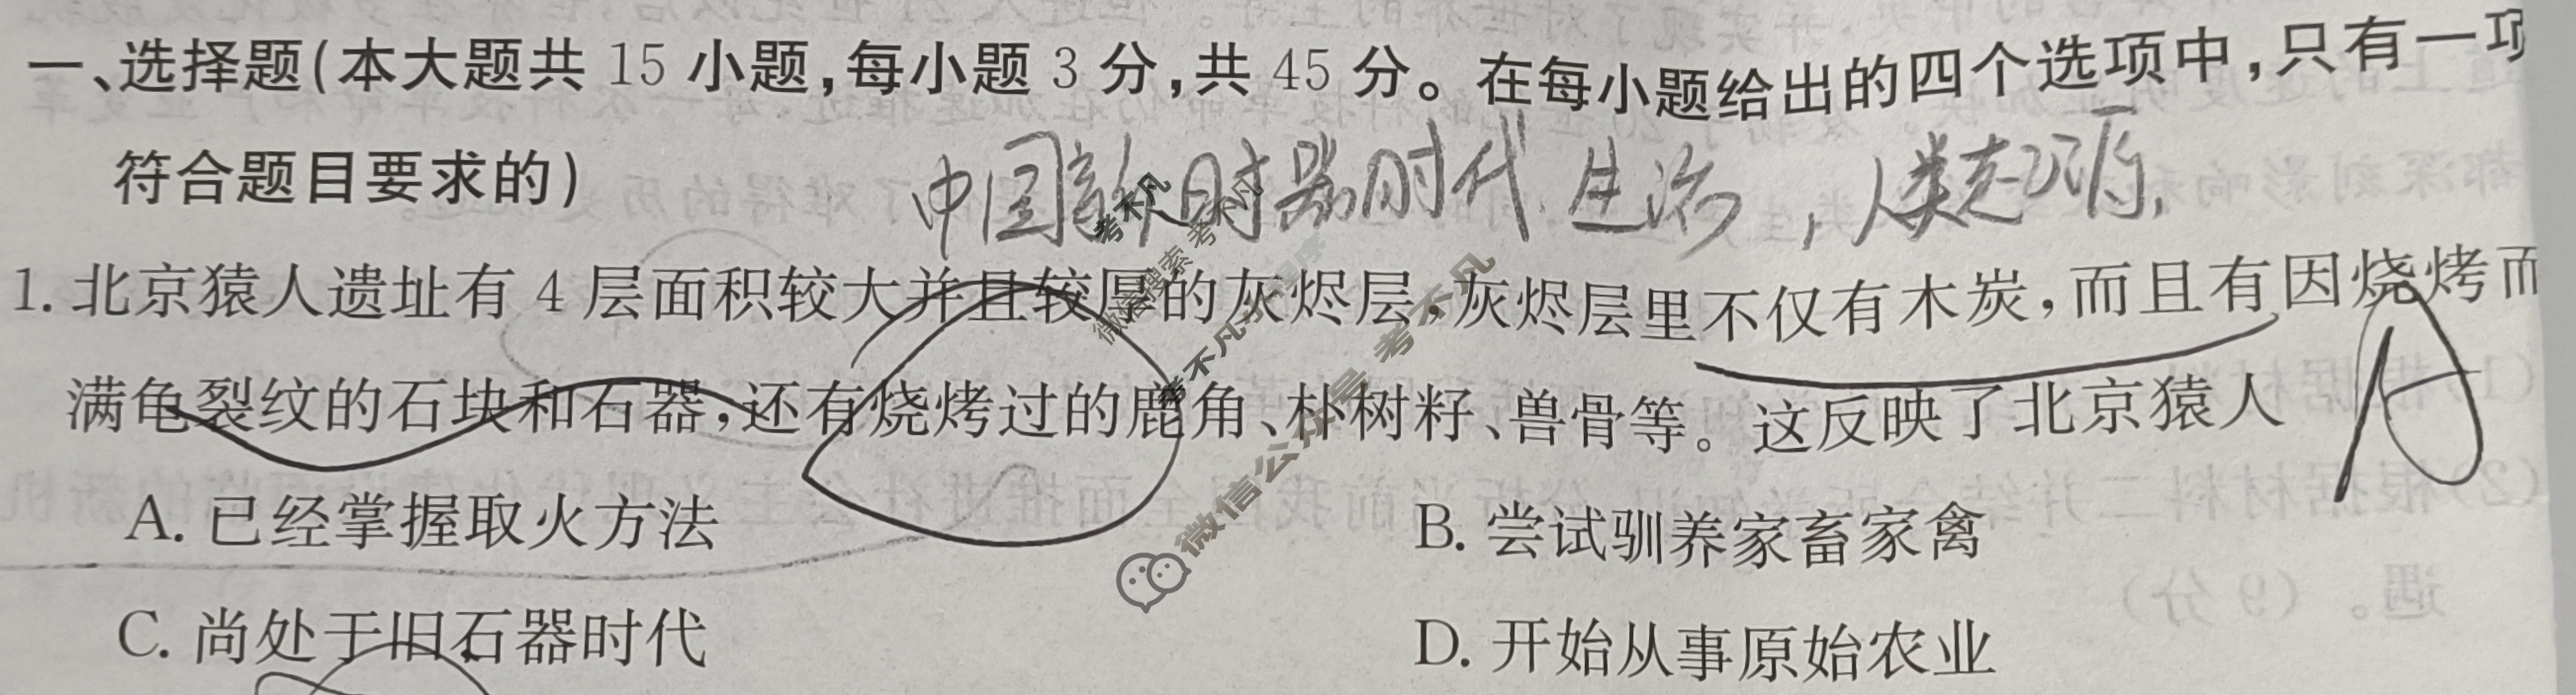 一、选择题(本大题共 15 小题,每小题 3 分,共 45 分。在每小题给出的四个选项中,只有一项
符合题目要求的)
中国新旧时器时代 生活,人类起源,
1. 北京猿人遗址有 4 层面积较大并且较厚的灰烬层,灰烬层里不仅有木炭,而且有因烧烤而
满龟裂纹的石块和石器,还有烧烤过的鹿角、朴树籽、兽骨等。这反映了北京猿人
A
A. 已经掌握取火方法 B. 尝试驯养家畜家禽
C. 尚处于旧石器时代 D. 开始从事原始农业
考不凡
微信搜索 考不凡
考不凡小程序
微信公众号 考不凡